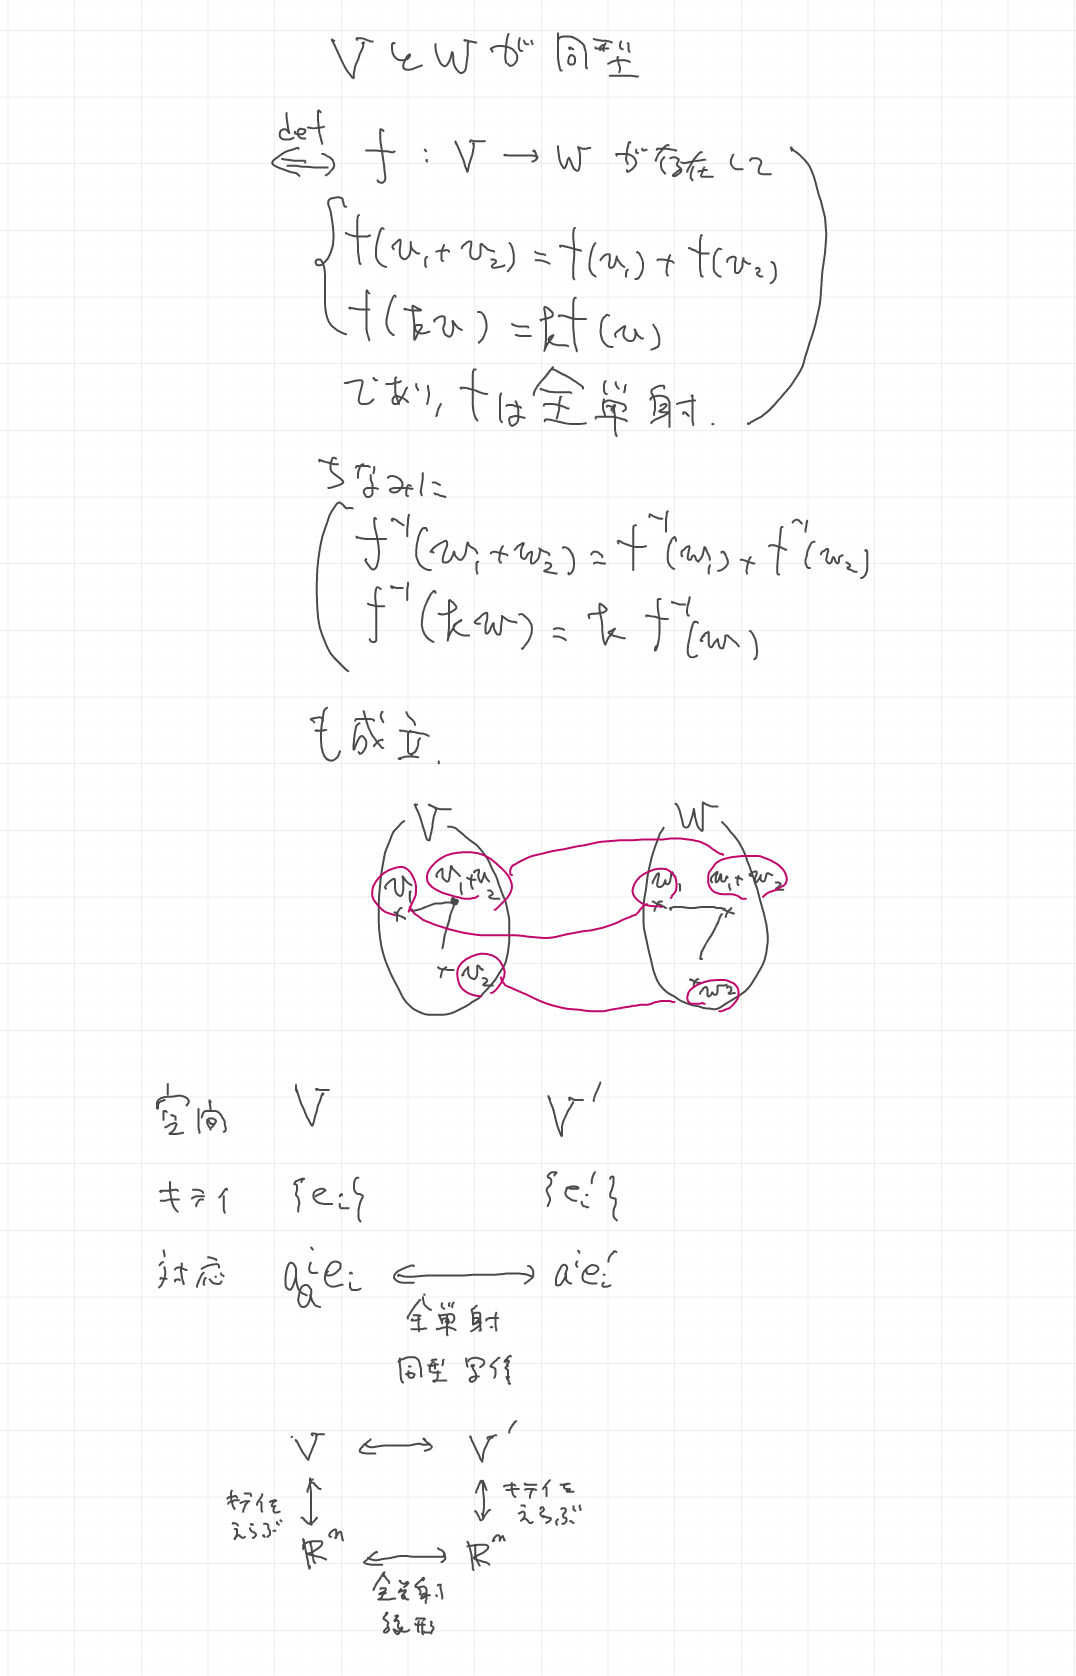 VとWが同型
def
⇔ f : V → W が存在して
f(v₁+v₂) = f(v₁) + f(v₂)
f(kv) = kf(v)
であり, fは全単射.
ちなみに
f⁻¹(w₁+w₂) = f⁻¹(w₁) + f⁻¹(w₂)
f⁻¹(kw) = k f⁻¹(w)
も成立.
V W
v₁ v₁+v₂ w₁ w₁+w₂
v₂ w₂
空間 V V′
キテイ {eᵢ} {eᵢ′}
対応 aⁱeᵢ ⟷ aⁱeᵢ′
a
全単射
同型写像
V ⟷ V′
キテイを
えらぶ
キテイを
えらぶ
ℝⁿ ⟷ ℝⁿ
全単射
線形